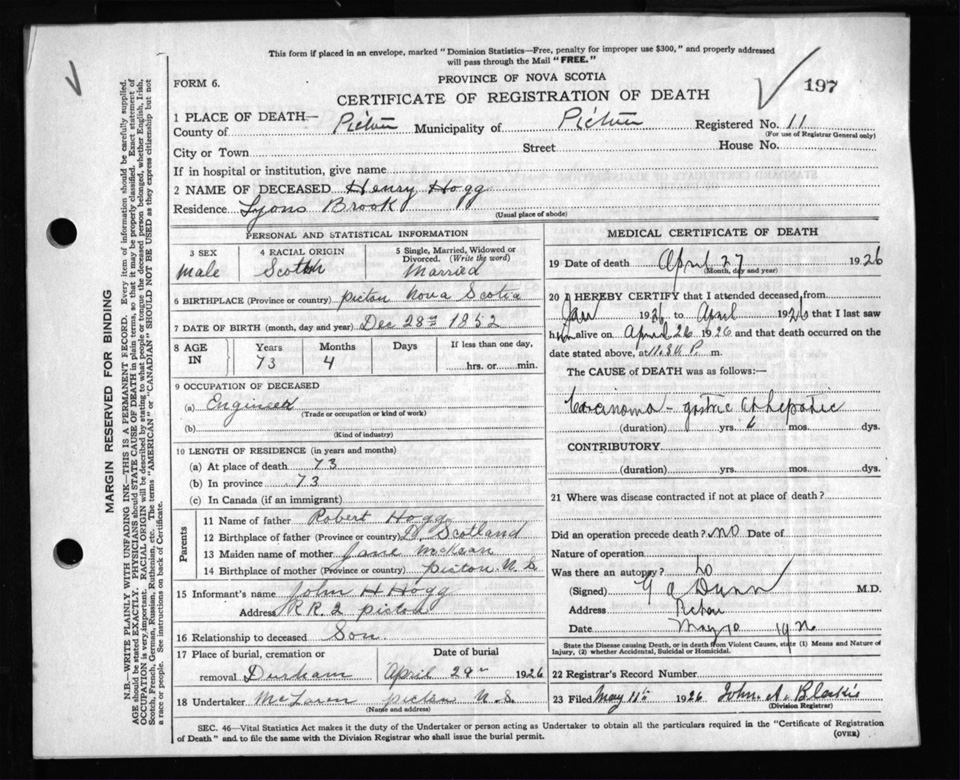 This form if placed in an envelope, marked "Dominion Statistics—Free, penalty for improper use $300," and properly addressed
will pass through the Mail "FREE."
FORM 6.
PROVINCE OF NOVA SCOTIA
197
CERTIFICATE OF REGISTRATION OF DEATH
1 PLACE OF DEATH—
County of Pictou Municipality of Pictou Registered No. 11
(For use of Registrar General only)
City or Town Street House No.
If in hospital or institution, give name
2 NAME OF DECEASED Henry Hogg
Residence Lyons Brook
(Usual place of abode)
PERSONAL AND STATISTICAL INFORMATION
3 SEX 4 RACIAL ORIGIN 5 Single, Married, Widowed or
Divorced. (Write the word)
Male Scotch Married
6 BIRTHPLACE (Province or country) Picton Nova Scotia
7 DATE OF BIRTH (month, day and year) Dec 28th 1852
8 AGE IN Years Months Days If less than one day,
73 4 hrs. or min.
9 OCCUPATION OF DECEASED
(a) Engineer
(Trade or occupation or kind of work)
(b)
(Kind of industry)
10 LENGTH OF RESIDENCE (in years and months)
(a) At place of death 73
(b) In province 73
(c) In Canada (if an immigrant)
Parents
11 Name of father Robert Hogg
12 Birthplace of father (Province or country) Scotland
13 Maiden name of mother Jane
14 Birthplace of mother (Province or country) Picton N.S.
15 Informant's name John H Hogg
Address RR 2 Picton
16 Relationship to deceased Son
17 Place of burial, cremation or Date of burial
removal Durham April 29th 1926
18 Undertaker McLaren Picton N.S.
(Name and address)
MEDICAL CERTIFICATE OF DEATH
19 Date of death April 27 1926
(Month, day and year)
20 I HEREBY CERTIFY that I attended deceased from
Jan 1926 to April 1926 that I last saw
him alive on April 26 1926 and that death occurred on
date stated above, at P. m.
The CAUSE of DEATH was as follows:—
Carcinoma – gastric & hepatic
(duration) yrs. 6 mos. dys.
CONTRIBUTORY.
(duration) yrs. mos. dys.
21 Where was disease contracted if not at place of death?
Did an operation precede death? NO Date of
Nature of operation
Was there an autopsy? no
(Signed) G A Dunn M.D.
Address Pictou
Date May 10 1926
State the Disease causing Death, or in death from Violent Causes, state (1) Means and Nature of
Injury, (2) whether Accidental, Suicidal or Homicidal.
22 Registrar's Record Number
23 Filed May 11th 1926 John A.
(Division Registrar)
SEC. 46—Vital Statistics Act makes it the duty of the Undertaker or person acting as Undertaker to obtain all the particulars required in the "Certificate of Registration
of Death" and to file the same with the Division Registrar who shall issue the burial permit.
(OVER)
MARGIN RESERVED FOR BINDING
N.B.—WRITE PLAINLY WITH UNFADING INK—THIS IS A PERMANENT RECORD. Every item of information should be carefully supplied.
AGE should be stated EXACTLY. PHYSICIANS should STATE CAUSE OF DEATH in plain terms, so that it may be properly classified. Exact statement of
OCCUPATION is very important. RACIAL ORIGIN will be described by stating to what people or tongue the deceased person belonged, whether English, Irish,
Scotch, French, German, Russian, Ruthenian, etc. The terms "AMERICAN" or "CANADIAN" SHOULD NOT BE USED as they express citizenship but not
a race or people. See instructions on back of Certificate.